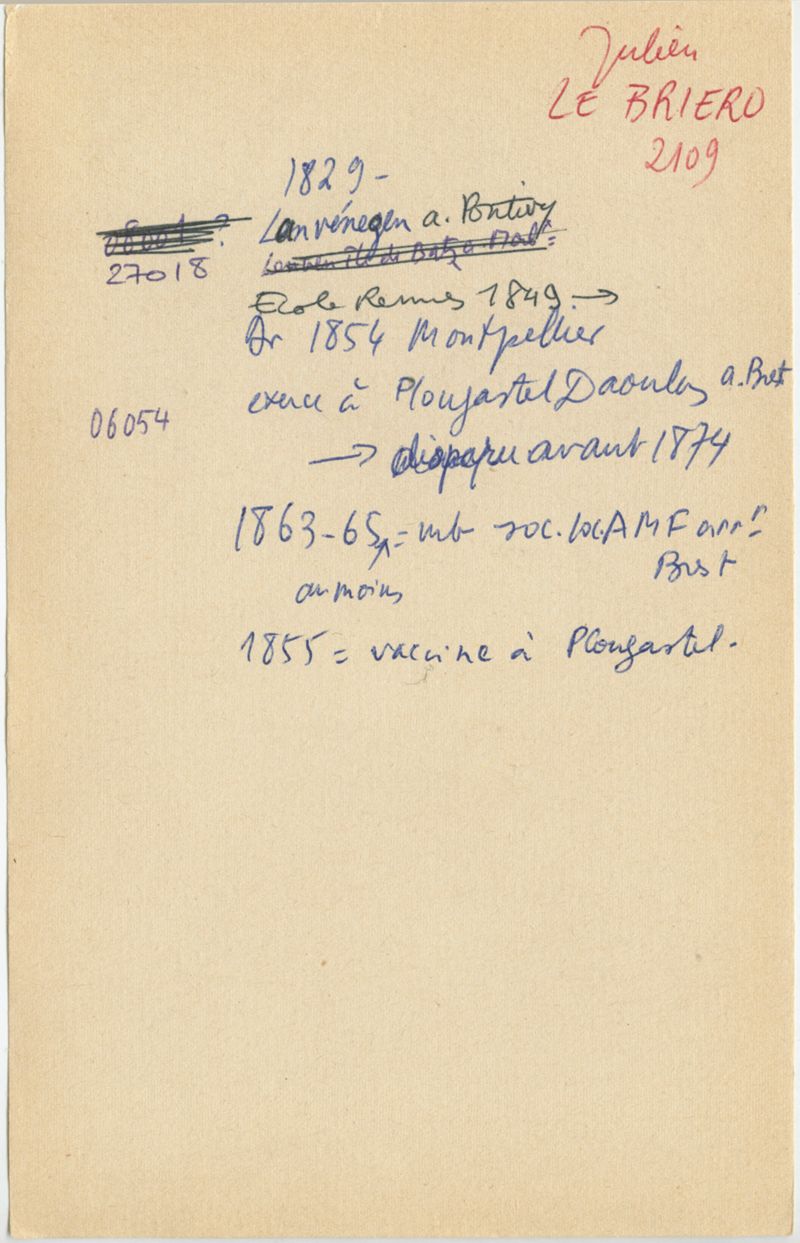 Julien
LE BRIERO
2109
1829 -
Lanvénegen a. Pontivy
27018
Ecole Rennes 1849 →
Dr 1854 Montpellier
exerce à Plougastel Daoulas a. Brest
06054
→ disparu avant 1874
1863-65 = mb soc. loc. AMF arrt
Brest
au moins
1855 = vaccine à Plougastel.